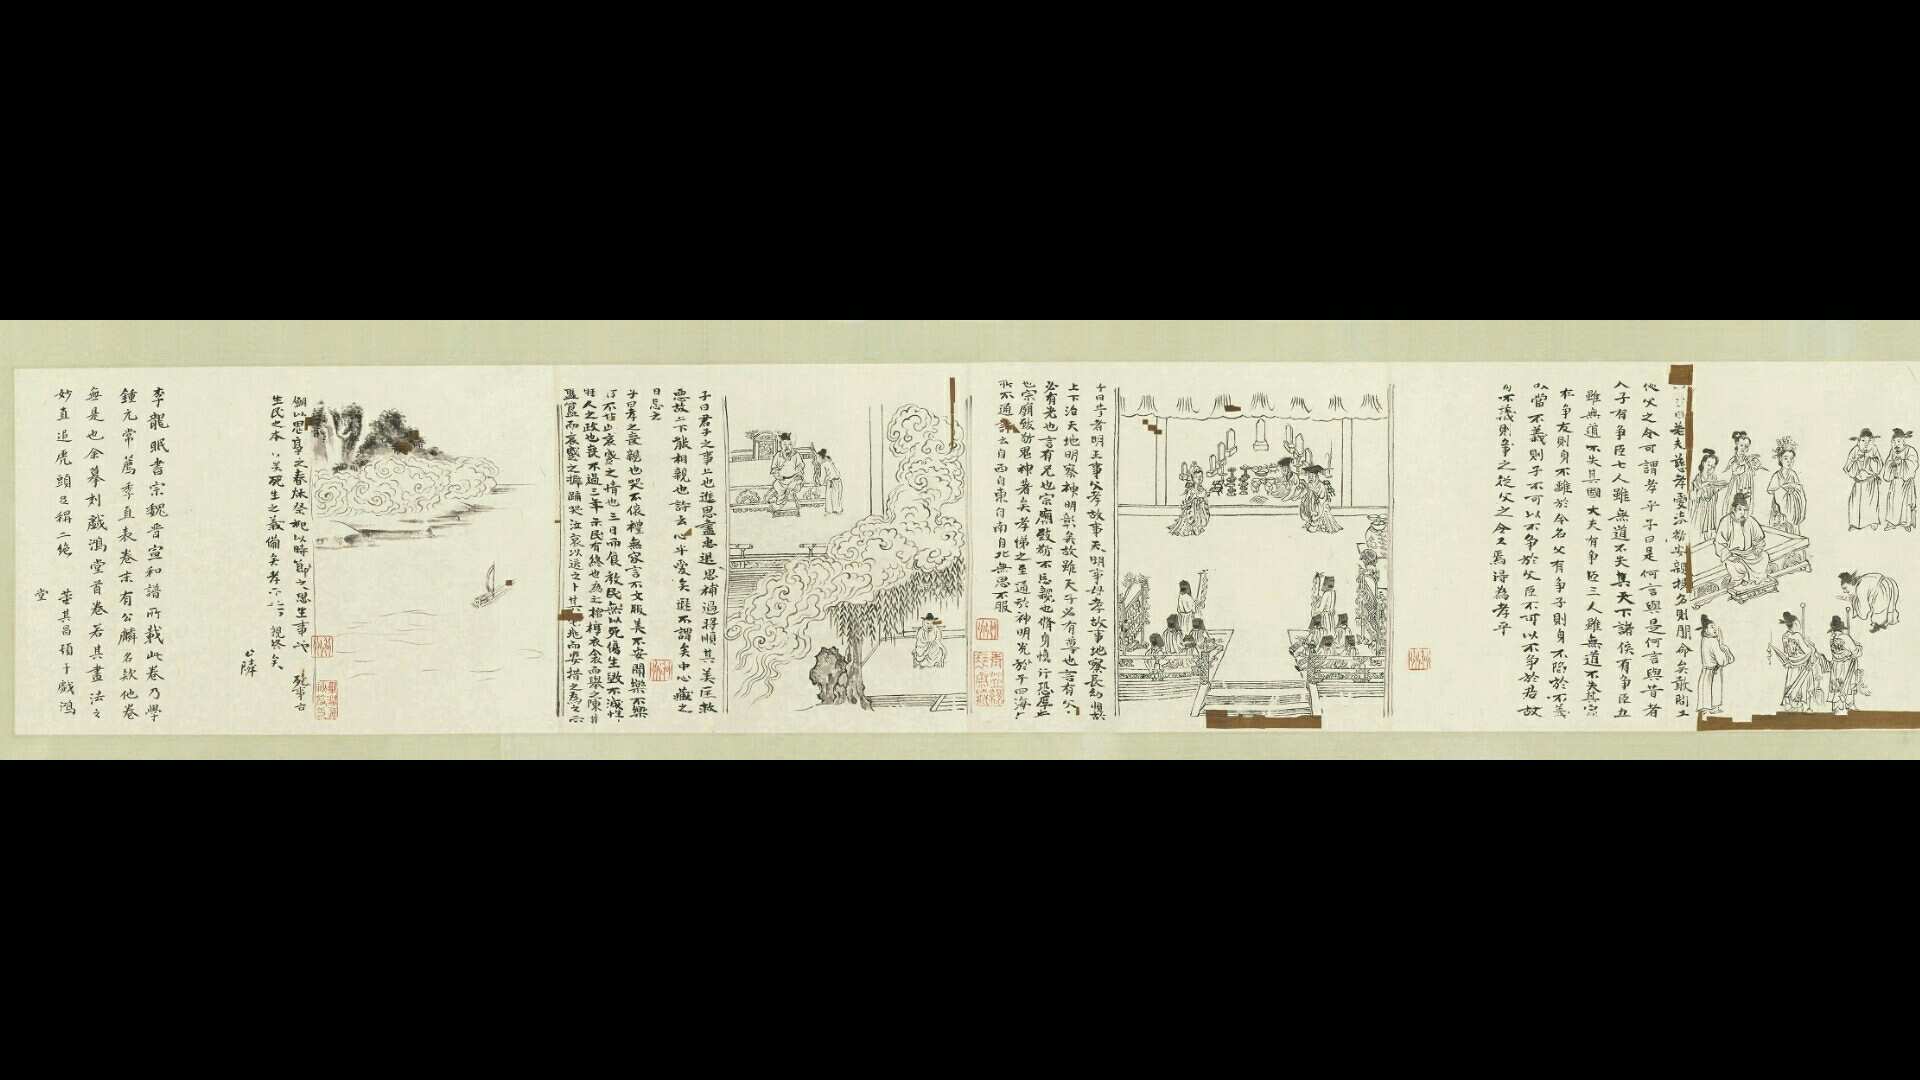 曰若夫慈孝愛恭安親揚名則聞命矣敢問子
從父之令可謂孝乎子曰是何言與是何言與昔者
天子有爭臣七人雖無道不失其天下諸侯有爭臣五
雖無道不失其國大夫有爭臣三人雖無道不失其家
有爭友則身不離於令名父有爭子則身不陷於不義
故當不義則子不可以不爭於父臣不可以不爭於君故
當不義則爭之從父之令又焉得為孝乎
子曰昔者明王事父孝故事天明事母孝故事地察長幼順故
上下治天地明察神明彰矣故雖天子必有尊也言有父
必有先也言有兄也宗廟致敬不忘親也脩身慎行恐辱先
也宗廟致敬鬼神著矣孝悌之至通於神明光於四海
所不通詩云自西自東自南自北無思不服
子曰君子之事上也進思盡忠退思補過將順其美匡救
惡故上下能相親也詩云心乎愛矣遐不謂矣中心藏之
日忘之
子曰孝子之喪親也哭不偯禮無容言不文服美不安聞樂不樂
旨不甘此哀慼之情也三日而食教民無以死傷生毀不滅性
聖人之政也喪不過三年示民有終也為之棺椁衣衾而舉之陳其
簠簋而哀慼之擗踊哭泣哀以送之卜其宅兆而安措之為之宗
廟以思享之春秋祭祀以時節之思生事 死事哀
生民之本 矣死生之義備矣孝 親終矣
公麟
李龍眠書宗魏晉宣和譜所載此卷乃學
鍾元常薦季直表卷末有公麟名欵他卷
無是也余摹刻戲鴻堂首卷若其畫法之
妙直追虎頭足稱二絶 董其昌題于戲鴻
堂